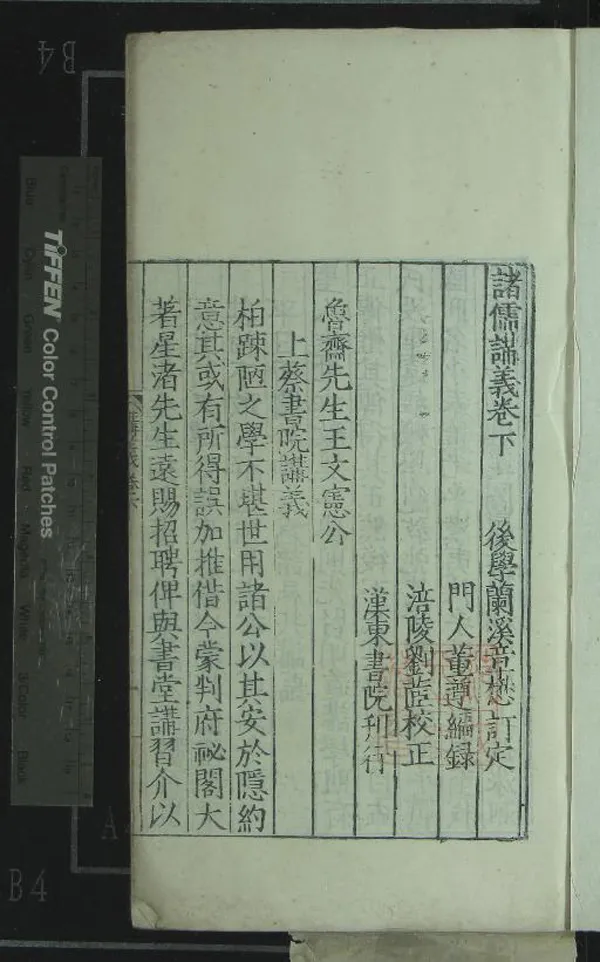 諸儒講義卷下
後學蘭溪章懋訂定
門人董遵編録
涪陵劉蒞校正
漢東書院刋行
魯齋先生王文憲公
上蔡書院講義
柏踈陋之學不堪世用諸公以其安於隱約
意其或有所得誤加推借今蒙判府祕閣大
著星渚先生遠賜招聘俾與書堂講習介以
TIFFEN Color Control Patches
Blue
Green
Yellow
Red
Magenta
White
3/Color
Black
B4
B4
A